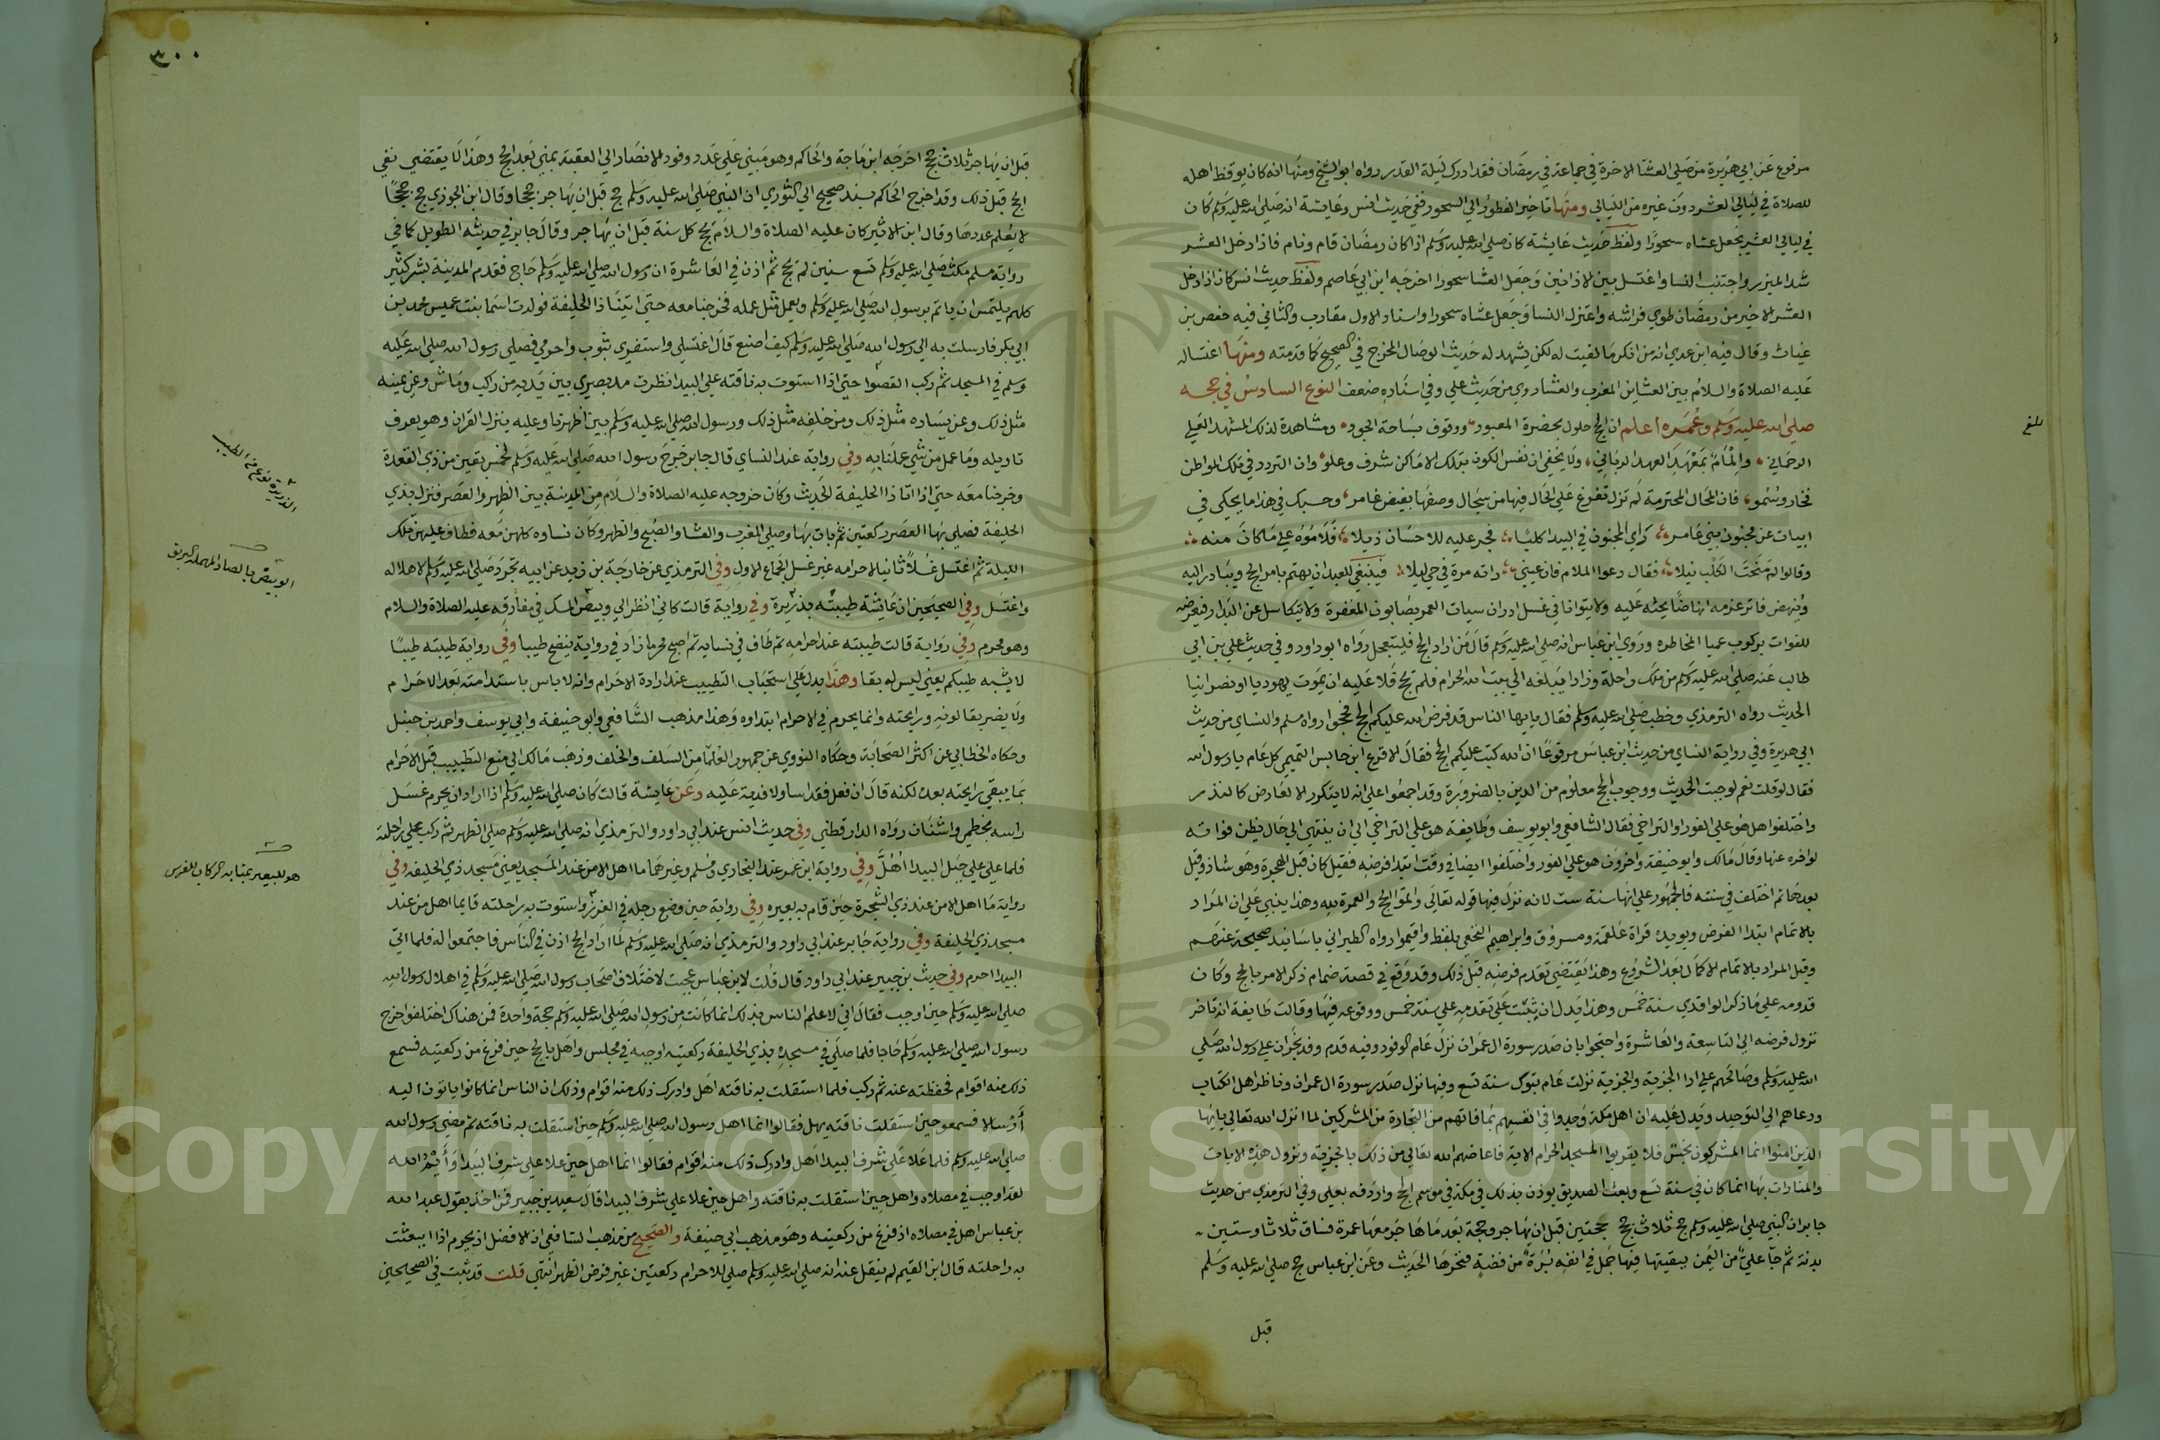 مرفوع عن ابي هريرة من صلي العشا الاخرة في جماعة في رمضان فقد ادرك ليلة القدر رواه ابو الشيخ ومنها انه كان يوقظ اهله
للصلاة في ليالي العشر دون غيره من الليالي ومنها تاخير الفطور الي السحور ففي حديث انس وعايشة انه صلي الله عليه وسلم كان
في ليالي العشر يجعل عشاه سحورا ولفظ حديث عايشة كان صلي الله عليه وسلم اذا كان رمضان قام ونام فاذا دخل العشر
شد الميزر واجتنب النسا واغتسل بين الاذانين وجعل العشا سحورا اخرجه ابن ابي عاصم ولفظ حديث انس كان اذا دخل
العشر الاخير من رمضان طوي فراشه واعتزل النسا وجعل عشاه سحورا واسناد الاول مقارب والثاني فيه حفص بن
غياث وقال فيه ابن عدي انه من انكر ما لقيت له لكن يشهد له حديث الوصال المخرج في الصحيح كما قدمته ومنها اغتساله
عليه الصلاة والسلام بين العشاين المغرب والعشا روي من حديث علي وفي اسناده ضعف النوع السادس في حجه
صلي الله عليه وسلم وعمره اعلم ان الحج حلول بحضرة المعبود ووقوف بساحة الجود ومشاهدة لذلك المشهد العلي
الرحماني والمام بمعهد العهد الرباني ولا يخفي ان نفس الكون بتلك الاماكن شرف وعلو وان التردد في تلك المواطن
فخار وسمو فان المحال المحترمة لم تزل تفرغ علي الحال فيها من سجال وصفها بفيض غامر وحسبك في هذا ما يحكي في
ابيات عن مجنون بني عامر راي المجنون في البيدا كلبا فجر عليه للاحسان ذيلا فلاموه علي ما كان منه
وقالوا لم منحت الكلب نيلا فقال دعوا الملام فان عيني راته مرة في حي ليلا فينبغي للعبد ان يهتم بامر الحج ويبادر اليه
وينهض فاتر عزمه انهاضا يحثه عليه ولا يتوانا في غسل ادران سيات العمر بصابون المغفرة ولا يتكاسل عن البدار فيعرضه
للفوات بركوب عميا المخاطره وروي ابن عباس انه صلي الله عليه وسلم قال من اراد الحج فليتعجل رواه ابو داود وفي حديث علي بن ابي
طالب عنه صلي الله عليه وسلم من ملك راحلة وزادا يبلغه الي بيت الله الحرام فلم يحج فلا عليه ان يموت يهوديا او نصرانيا
الحديث رواه الترمذي وخطب صلي الله عليه وسلم فقال يا ايها الناس قد فرض الله عليكم الحج فحجوا رواه مسلم والنساي من حديث
ابي هريرة وفي رواية النساي من حديث ابن عباس مرفوعا ان الله كتب عليكم الحج فقال الاقرع ابن حابس التميمي كل عام يا رسول الله
فقال لو قلت نعم لوجبت الحديث ووجوب الحج معلوم من الدين بالضرورة وقد اجمعوا علي انه لا يتكرر الا لعارض كالنذر
واختلفوا هل هو علي الفور او التراخي فقال الشافعي وابو يوسف وطايفة هو علي التراخي الي ان ينتهي الي حال يظن فواته
لو اخره عنها وقال مالك وابو حنيفة واخرون هو علي الفور واختلفوا ايضا في وقت ابتدا فرضه فقيل كان قبل الهجرة وهو شاذ وقيل
بعدها ثم اختلف في سنته فالجمهور علي انها سنة ست لانه نزل فيها قوله تعالي واتموا الحج والعمرة لله وهذا ينبني علي ان المراد
بالاتمام ابتدا الفرض ويويده قراة علقمة ومسروق وابراهيم النخعي بلفظ واقيموا رواه الطبراني باسانيد صحيحة عنهم
وقيل المراد بالاتمام الاكمال بعد الشروع وهذا يقتضي تقدم فرضه قبل ذلك وقد وقع في قصة ضمام ذكر الامر بالحج وكان
قدومه علي ما ذكر الواقدي سنة خمس وهذا يدل ان ثبت علي تقدمه علي سنة خمس ووقوعه فيها وقالت طايفة انه تاخر
نزول فرضه الي التاسعة والعاشرة واحتجوا بان صدر سورة ال عمران نزل عام الوفود وفيه قدم وفد نجران علي رسول الله صلي
الله عليه وسلم وصالحهم علي ادا الجزية والجزية نزلت عام تبوك سنة تسع وفيها نزل صدر سورة ال عمران وناظر اهل الكتاب
ودعاهم الي التوحيد ويدل عليه ان اهل مكة وجدوا في انفسهم بما فاتهم من التجارة من المشركين لما انزل الله تعالي يا ايها
الذين امنوا انما المشركون نجس فلا يقربوا المسجد الحرام الاية فاعاضهم الله تعالي من ذلك بالجزية ونزول هذه الايات
والمنادات بها انما كان في سنة تسع وبعث الصديق يوذن بذلك في مكة في موسم الحج واردفه بعلي وفي الترمذي من حديث
جابر ان النبي صلي الله عليه وسلم حج ثلاث حجج حجتين قبل ان يهاجر وحجة بعد ما هاجر معها عمرة فساق ثلاثا وستين
بدنة ثم جا علي من اليمن ببقيتها فيها جمل في انفه برة من فضة فنحرها الحديث وعن ابن عباس حج صلي الله عليه وسلم
قبل
بلغ
٣٠٠
قبل ان يهاجر ثلاث حجج اخرجه ابن ماجة والحاكم وهو مبني علي عدد وفود الانصار الي العقبة بمني بعد الحج وهذا لا يقتضي نفي
الحج قبل ذلك وقد اخرج الحاكم بسند صحيح الي الثوري ان النبي صلي الله عليه وسلم حج قبل ان يهاجر حججا وقال ابن الجوزي حج حججا
لا يعلم عددها وقال ابن الاثير كان عليه الصلاة والسلام يحج كل سنة قبل ان يهاجر وقال جابر في حديثه الطويل كما في
رواية مسلم مكث صلي الله عليه وسلم تسع سنين لم يحج ثم اذن في العاشرة ان رسول الله صلي الله عليه وسلم حاج فقدم المدينة بشر كثير
كلهم يلتمس ان ياتم برسول الله صلي الله عليه وسلم ويعمل مثل عمله فخرجنا معه حتي اتينا ذا الحليفة فولدت اسما بنت عميس محمد بن
ابي بكر فارسلت به الي رسول الله صلي الله عليه وسلم كيف اصنع قال اغتسلي واستفري بثوب واحرمي فصلي رسول الله صلي الله عليه
وسلم في المسجد ثم ركب القصوا حتي اذا استوت به ناقته علي البيدا نظرت مد بصري بين يديه من راكب وماش وعن يمينه
مثل ذلك وعن يساره مثل ذلك ومن خلفه مثل ذلك ورسول الله صلي الله عليه وسلم بين اظهرنا وعليه ينزل القران وهو يعرف
تاويله وما عمل من شي عملنا به وفي رواية عند النساي قال جابر خرج رسول الله صلي الله عليه وسلم لخمس بقين من ذي القعدة
وخرجنا معه حتي اذا اتا ذا الحليفة الحديث وكان خروجه عليه الصلاة والسلام من المدينة بين الظهر والعصر فنزل بذي
الحليفة فصلي بها العصر ركعتين ثم بات بها وصلي المغرب والعشا والصبح والظهر وكان نساوه كلهن معه فطاف عليهن تلك
الليلة ثم اغتسل غسلا ثانيا لاحرامه غير غسل الجماع الاول وفي الترمذي عن خارجة بن زيد عن ابيه تجرد صلي الله عليه وسلم لاهلاله
واغتسل وفي الصحيحين ان عايشة طيبته بذريرة وفي رواية قالت كاني انظر الي وبيص المسك في مفارقه عليه الصلاة والسلام
وهو محرم وفي رواية قالت طيبته عند احرامه ثم طاف في نسايه ثم اصبح محرما زاد في رواية ينضح طيبا وفي رواية طيبته طيبا
لا يشبه طيبكم يعني ليس له بقا وهذا يدل علي استحباب التطييب عند ارادة الاحرام وانه لا باس باستدامته بعد الاحرام
ولا يضر بقا لونه ورايحته وانما يحرم في الاحرام ابتداوه وهذا مذهب الشافعي وابو حنيفة وابي يوسف واحمد بن حنبل
وحكاه الخطابي عن اكثر الصحابة وحكاه النووي عن جمهور العلما من السلف والخلف وذهب مالك الي منع التطييب قبل الاحرام
بما يبقي رايحته بعده لكنه قال ان فعل فقد اسا ولا فدية عليه وعن عايشة قالت كان صلي الله عليه وسلم اذا اراد ان يحرم غسل
راسه بخطمي واشنان رواه الدارقطني وفي حديث انس عند ابي داود والترمذي انه صلي الله عليه وسلم صلي الظهر ثم ركب علي راحلته
فلما علي علي جبل البيدا اهل وفي رواية ابن عمر عند البخاري ومسلم وغيرهما ما اهل الا من عند المسجد يعني مسجد ذي الحليفه وفي
رواية ما اهل الا من عند ذي الشجرة حين قام به بعيره وفي رواية حين وضع رجله في الغرز واستوت به راحلته قايما اهل من عند
مسجد ذي الحليفة وفي رواية جابر عند ابي داود والترمذي انه صلي الله عليه وسلم لما اراد الحج اذن في الناس فاجتمعوا له فلما اتي
البيدا احرم وفي حديث بن جبير عند ابي داود قال قلت لابن عباس عجبت لاختلاف اصحاب رسول الله صلي الله عليه وسلم في اهلال رسول الله
صلي الله عليه وسلم حين اوجب فقال اني لاعلم الناس بذلك انما كانت من رسول الله صلي الله عليه وسلم حجة واحدة فمن هناك اختلفوا خرج
رسول الله صلي الله عليه وسلم حاجا فلما صلي في مسجده بذي الحليفة ركعتيه اوجبه في مجلس واهل بالحج حين فرغ من ركعتيه فسمع
ذلك منه اقوام فحفظته عنه ثم ركب فلما استقلت به ناقته اهل وادرك ذلك منه اقوام وذلك ان الناس انما كانوا ياتون اليه
ارسالا فسمعوه حين استقلت ناقته يهل فقالوا انما اهل رسول الله صلي الله عليه وسلم حين استقلت به ناقته ثم مضي رسول الله
صلي الله عليه وسلم فلما علا علي شرف البيدا اهل وادرك ذلك منه اقوام فقالوا انما اهل حين علا علي شرف البيدا وايم الله
لقد اوجب في مصلاه واهل حين استقلت به ناقته واهل حين علا علي شرف البيدا قال سعيد بن جبير فمن اخذ بقول عبد الله
بن عباس اهل في مصلاه اذ فرغ من ركعتيه وهو مذهب ابي حنيفة والصحيح من مذهب الشافعي ان الافضل ان يحرم اذا انبعثت
به راحلته قال ابن القيم لم ينقل عنه انه صلي الله عليه وسلم صلي للاحرام ركعتين غير فرض الظهر انتهي قلت قد ثبت في الصحيحين
الذريرة نوع من الطيب
الوبيص بالصاد المهملة البريق
هو للبعير بمثابة الركاب للفرس
Copyright © King Saud University